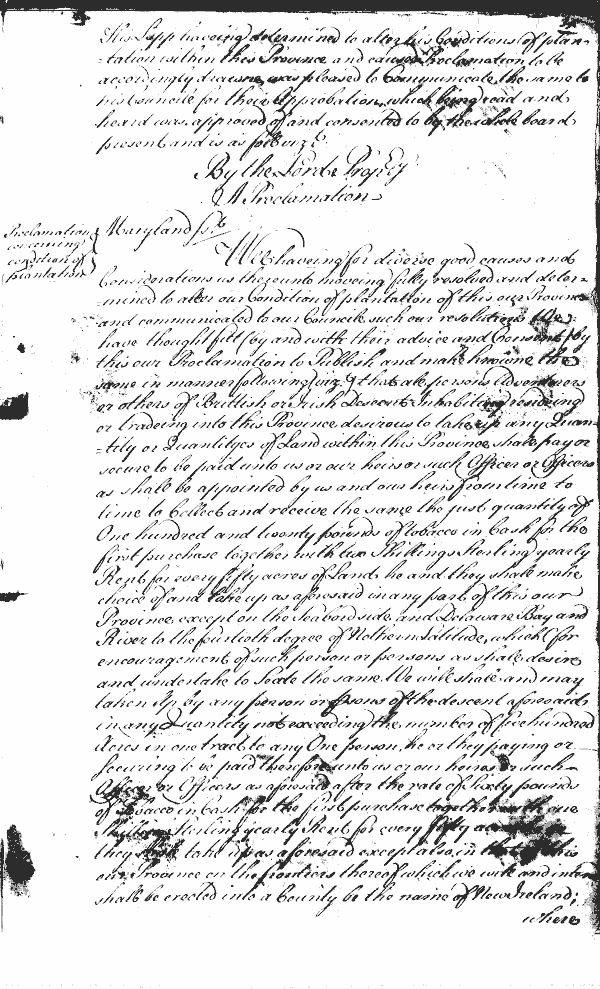 his Lspp haveing determined to alter his Conditions of plan-
tation within this Province and caused Proclamation to be
accordingly drawne was pleased to Communicate the same to
his Councile for their Approbation, which being read and
heard was approved of and consented to by the whole board
present and is as foll: vizt
By the Lord Propry
A Proclamation
Proclamation
concerning
condition of
plantation
Maryland ss:
Wee haveing for diverse good causes and
Considerations us thereunto moveing fully resolved and deter-
mined to alter our Condition of plantation of this our Province
and communicated to our Councile such our resolutions We
have thought fitt (by and with their advice and Consent) by
this our Proclamation to Publish and make knowne the
same in manner following vizt that all persons Adventurers
or others of Brittish or Irish Descent Inhabiting resideing
or tradeing into this Province desirous to take up any Quan-
-tity or Quantityes of Land within this Province shall pay or
secure to be paid unto us or our heirs or such Officer or Officers
as shall be appointed by us and our heirs from time to
time to Collect and receive the same the just quantity of
One hundred and twenty pounds of tobacco in Cash for the
first purchase together with two Shillings Sterling yearly
Rent for every fifty acres of Land he and they shall make
choice of and take up as aforesaid in any part of this our
Province except on the Seabord side and Delaware Bay and
River to the fourtieth degree of Notherne Latitude, which (for
encouragement of such person or persons as shall desire
and undertake to Seate the same We will shall and may
taken Up by any person or psons of the descent aforesaid
in any Quantity not exceeding the number of five hundred
Acres in one tract to any One person, he or they paying or
Secureing to be paid therefore unto us or our heirs or such
Officer or Officers as aforesaid after the rate of Sixty pounds
of tobacco in Cash for the first purchase together with one
Shilling Sterling yearly Rent for every fifty
they shall take up as aforesaid except also in that of this
our Province on the frontiers thereof which we will and intend
shall be erected into a County be the name of New Ireland;
where